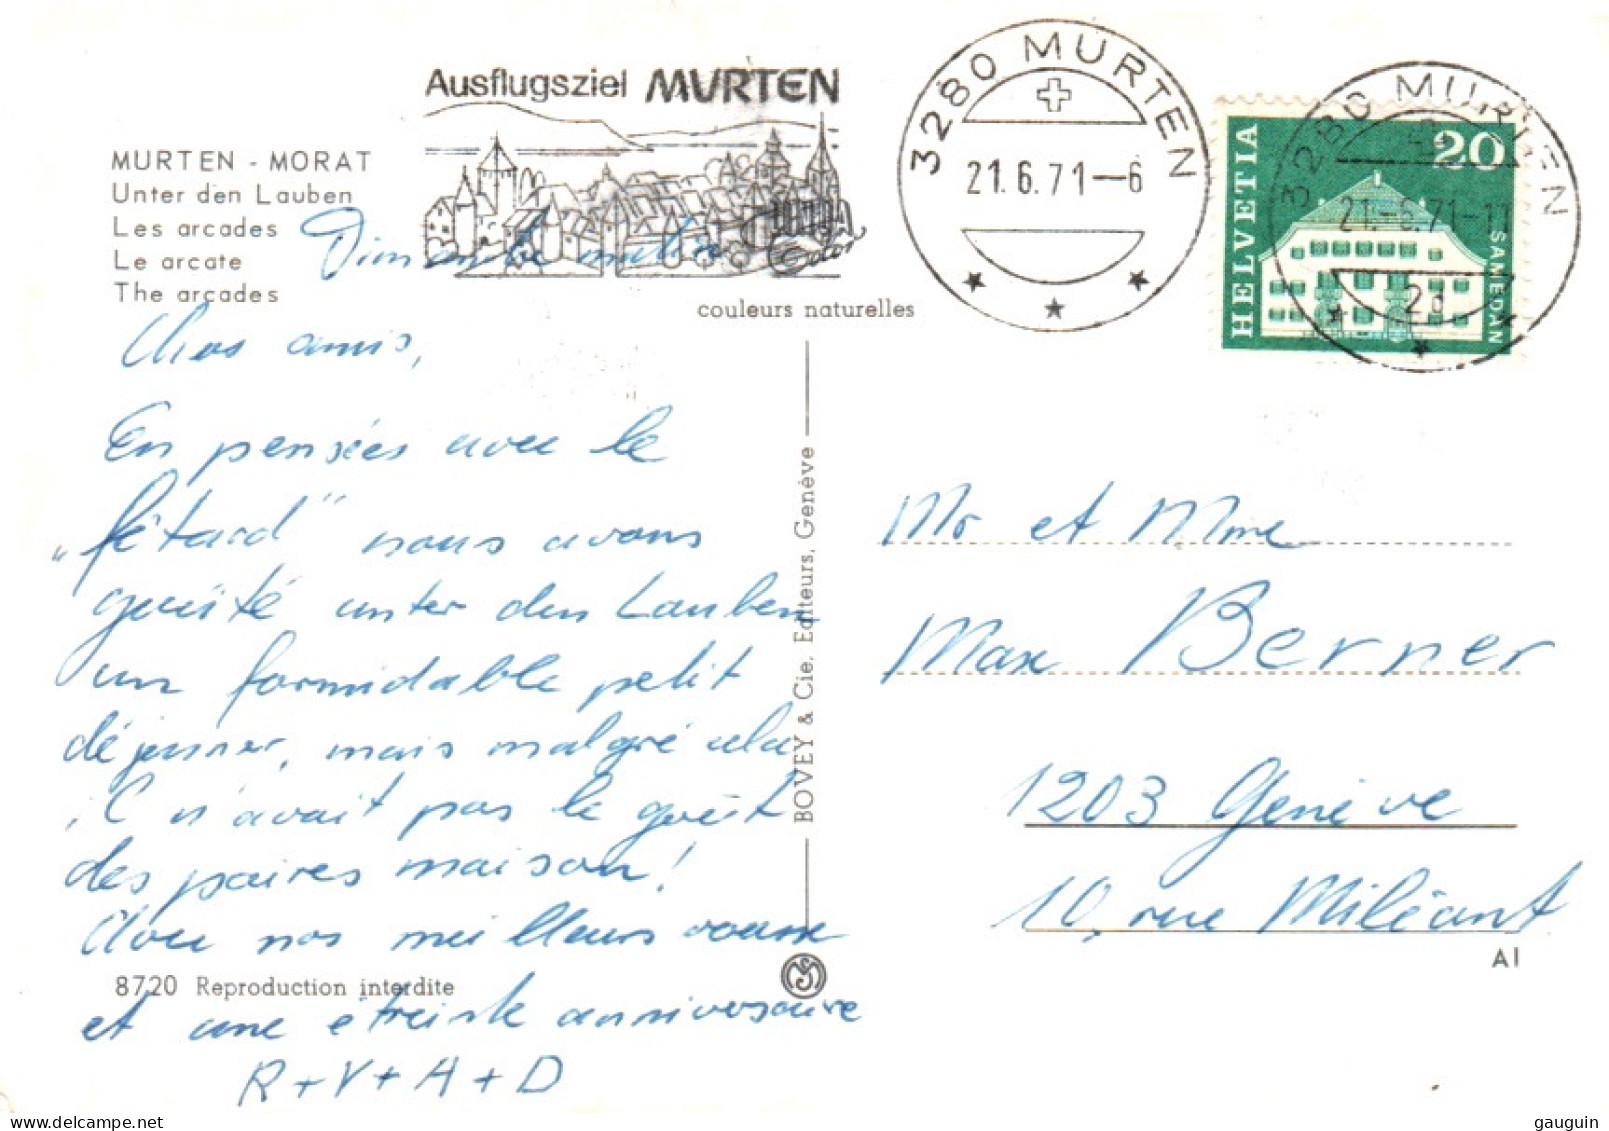 Ausflugsziel MURTEN
3280 MURTEN
21.6.71-6
3280 MURTEN
21.-6.71-11
2d
HELVETIA
20
SAMEDAN
MURTEN - MORAT
Unter den Lauben
Les arcades
Le arcate
The arcades
couleurs naturelles
Dimanche matin
Chers amis,
En pensées avec le
„fêtard" nous avons
goûté unter den Lauben
un formidable petit
déjeuner, mais malgré cela
, il n'avait pas le goût
des paires maison!
Avec nos meilleurs voeux
et une étreinte anniversaire
R+Y+A+D
8720 Reproduction interdite
BOVEY & Cie, Editeurs, Genève
Mr et Mme
Max Berner
1203 Genève
10, rue Miléant
A1
gauguin